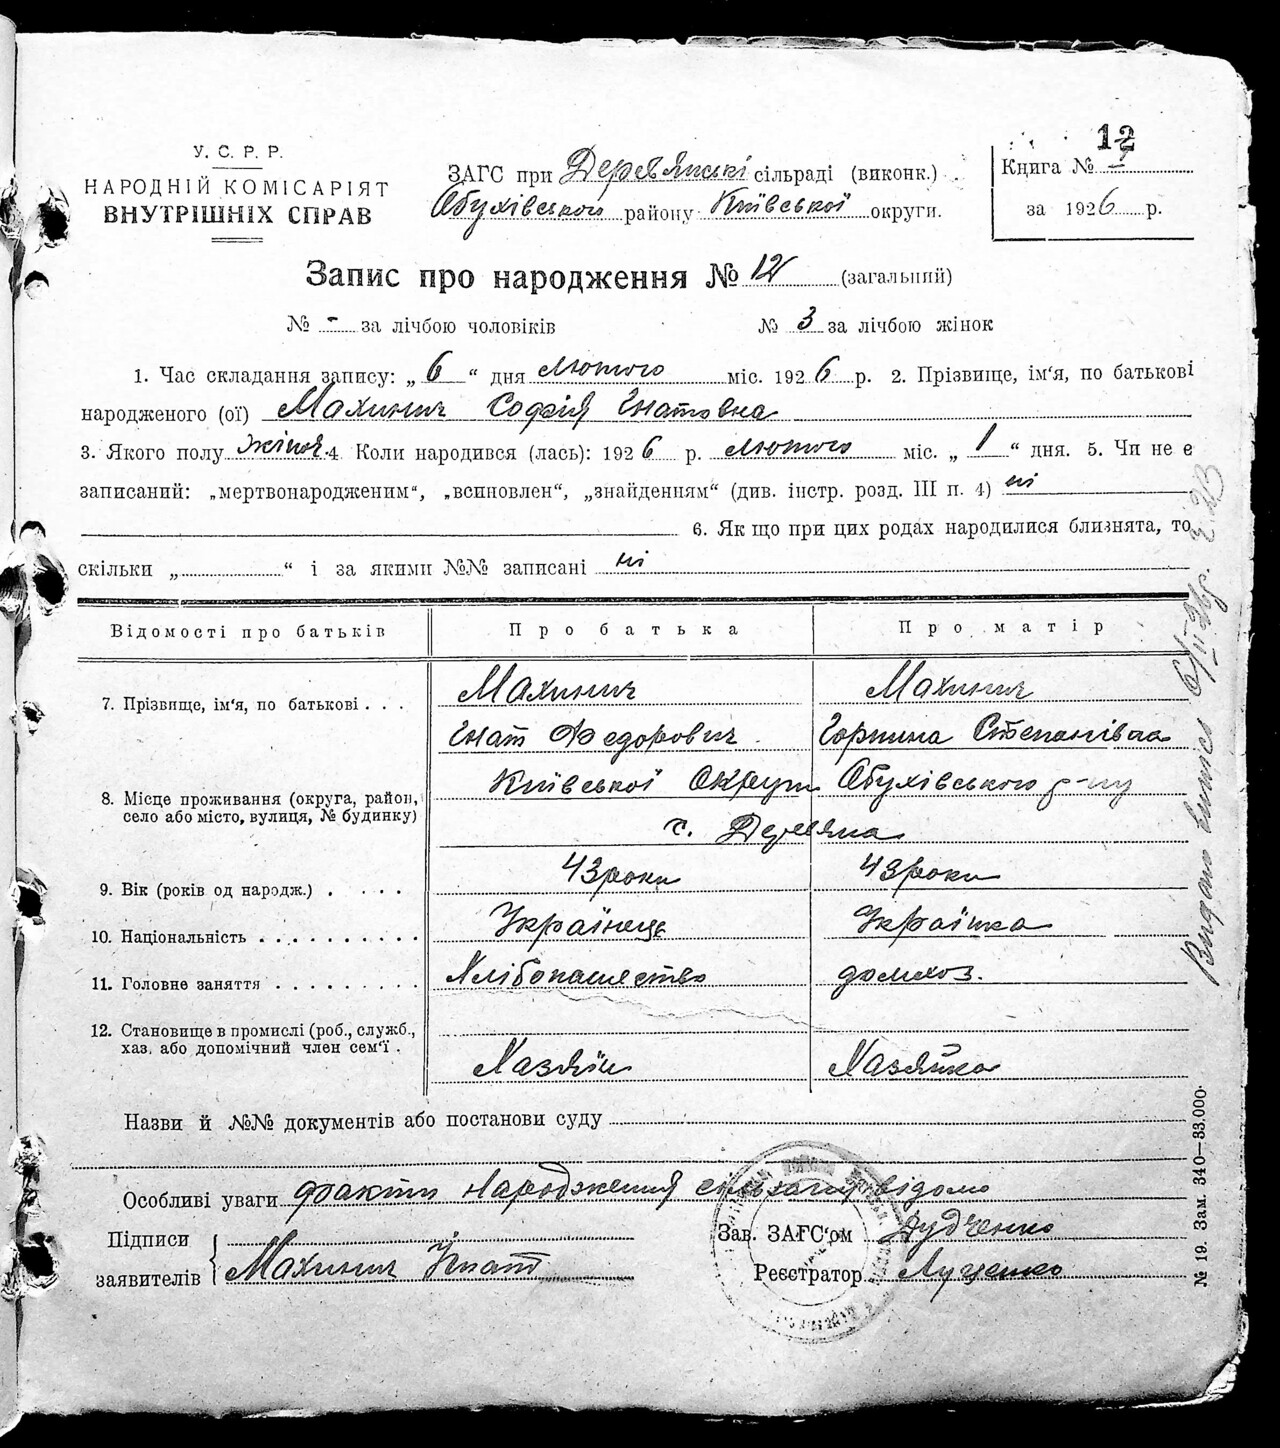 12
У. С. Р. Р.
НАРОДНІЙ КОМІСАРІЯТ
ВНУТРІШНІХ СПРАВ
ЗАГС при Деревянські сільраді (виконк.)
Обухівського району Київської округи.
Книга № I
за 1926 р.
Запис про народження № 12 (загальний)
№ - за лічбою чоловіків № 3 за лічбою жінок
1. Час складання запису: „6“ дня лютого міс. 1926 р. 2. Прізвище, ім'я, по батькові
народженого (ої) Махинич Софія Гнатовна
3. Якого полу жіноч. 4 Коли народився (лась): 1926 р. лютого міс. „1“ дня. 5. Чи не є
записаний: „мертвонародженим“, „всиновлен“, „знайденням“ (див. інстр. розд. III п. 4) ні
6. Як що при цих родах народилися близнята, то
скільки „ “ і за якими №№ записані ні
Відомості про батьків Про батька Про матір
7. Прізвище, ім'я, по батькові . . . Махинич Махинич
Гнат Федорович Горпина Степанівна
8. Місце проживання (округа, район, село або місто, вулиця, № будинку) Київської Округи Обухівського р-ну
с. Деревяна
9. Вік (років од народж.) . . . . 43 роки 43 роки
10. Національність . . . . . . . . . . Українець Українка
11. Головне заняття . . . . . . . . . Хлібопашество домхоз.
12. Становище в промислі (роб., служб., хаз. або допомічний член сем'ї . Хазяїн Хазяйка
Назви й №№ документів або постанови суду
Особливі уваги факти народження відомо
Підписи
заявителів Махинич Гнат
Зав. ЗАГС'ом Дудченко
Реєстратор Луценко
Видано випись 6/II-26р.
№ 19. Зам. 340—33.000.